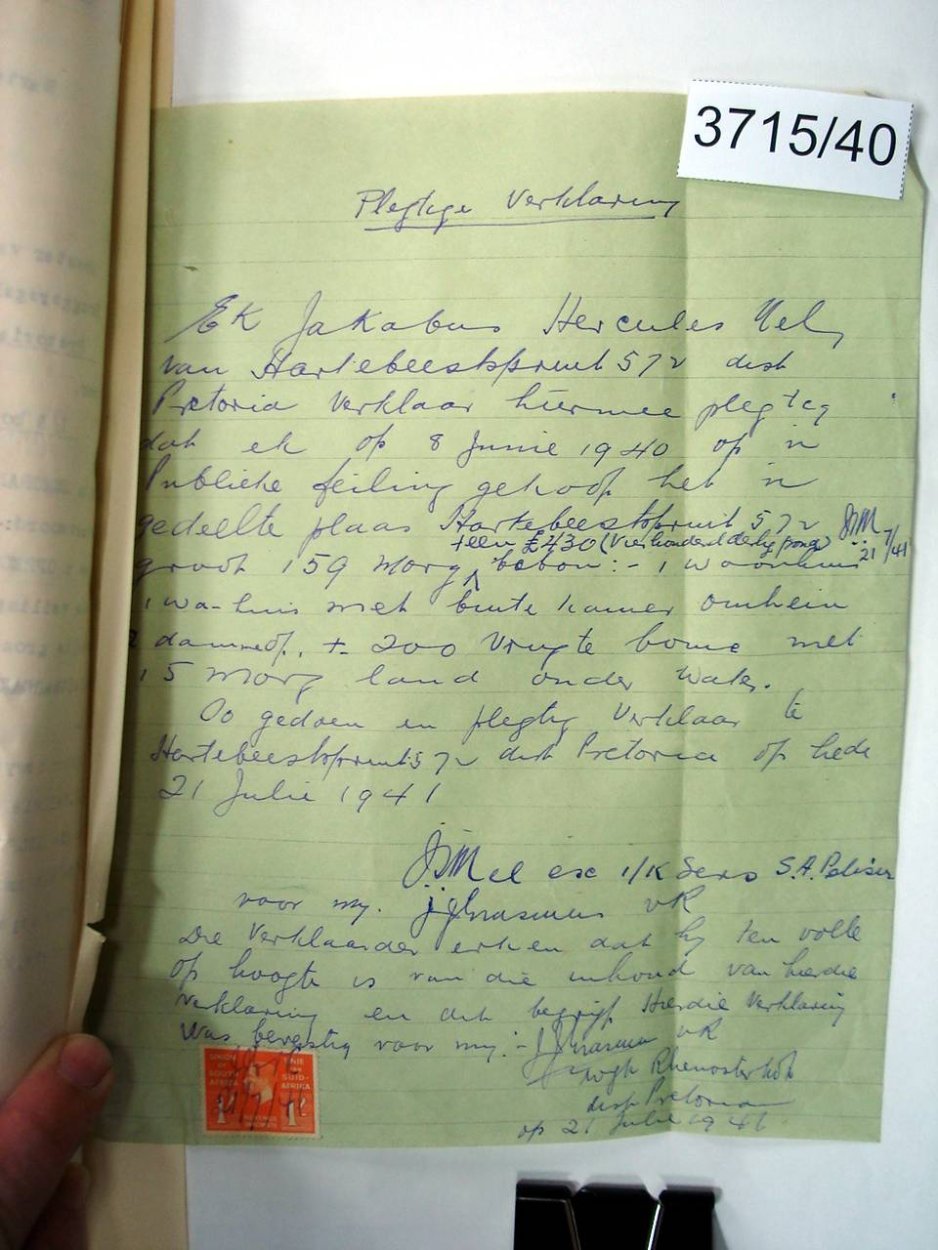 3715/40
Plegtige Verklaring
Ek Jakobus Hercules Nel,
van Hartebeestspruit 572 dist
Pretoria verklaar hiermee plegtig
dat ek op 8 Junie 1940 op 'n
Publieke feiling gekoop het 'n
gedeelte plaas Hartebeestspruit 572
teen £430 (Vierhonderd dertig pond) 21/7/41
groot 159 Morg, bebou:- 1 woonhuis
1 wa-huis met buite kamer omhein
2 damme op, + 200 Vrugte bome met
15 morg land onder water.
Oo gedoen en plegtig Verklaar te
Hartebeestspruit 572 dist Pretoria op hede
21 Julie 1941
Nel 1/K Sers S.A. Polisie
voor my. J J Erasmus VR
Die Verklaarder erken dat hy ten volle
op hoogte is van die inhoud van hierdie
verklaring en dit begryp. Hierdie Verklaring
Was bevestig voor my:- J J Erasmus VR
wyk Rhenosterkop
dist Pretoria
op 21 Julie 1941
UNION OF SOUTH AFRICA
UNIE VAN SUID-AFRIKA
21/7/41